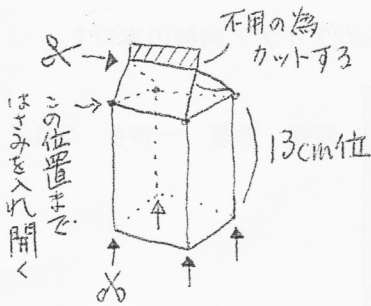 不用の為
カットする
この位置まで
はさみを入れ開く
13cm位